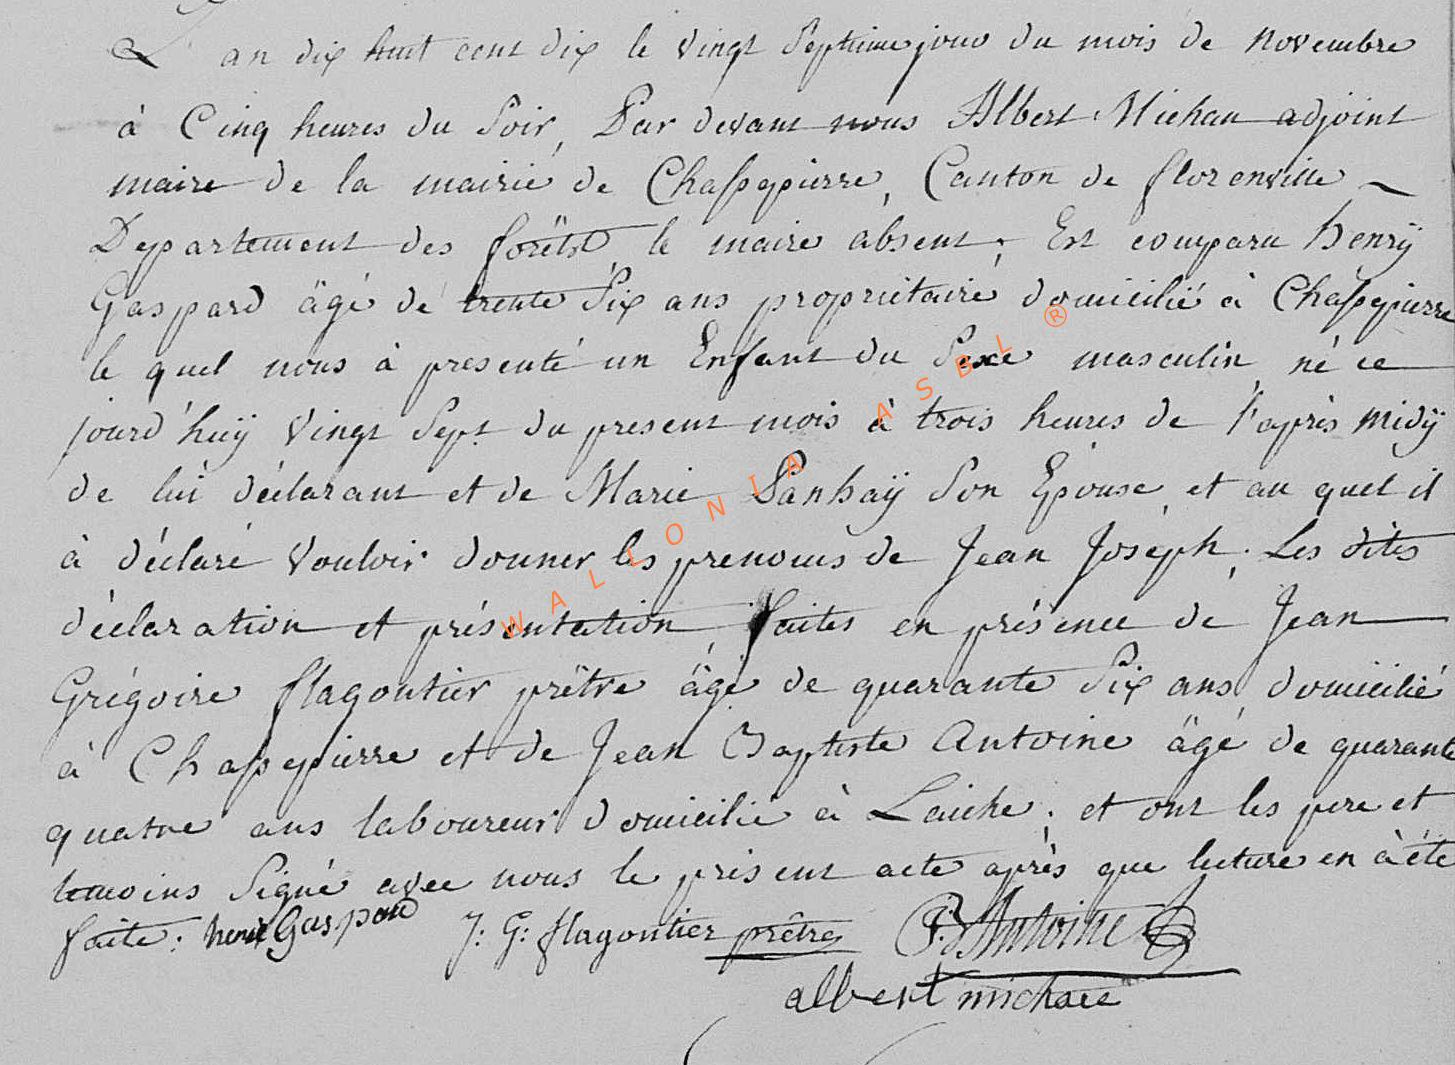 L'an dix huit cent dix le vingt Septieme jour du mois de novembre
à Cinq heures du Soir, Par devant nous Albert Michau adjoint
maire de la mairié de Chassepierre, Canton de florenville
Departement des forêts, le maire absent; Est comparu henrÿ
Gaspard âgé de trente Six ans propriétaire domicilié à Chassepierre
le quel nous à presenté un Enfant du Sexe masculin, né ce
jourd'huÿ Vingt Sept du present mois à trois heures de l'après midÿ
de lui déclarant et de Marie Panhaÿ Son Epouse, et au quel il
à déclaré vouloir donner les prenoms de Jean Joséph; Les dites
déclaration et présentation, faites en présence de Jean
Grégoire flagontier prêtre âgé de quarante Six ans, domicilié
à Chassepierre et de Jean Baptiste Antoine âgé de quarante
quatre ans laboureur domicilié à Laiche; et ont les pere et
temoins Signé avec nous le present acte après que lecture en à été
faite; henri Gaspard J: G: flagontier prêtre Antoine
albert michau
WALLONIA ASBL ®